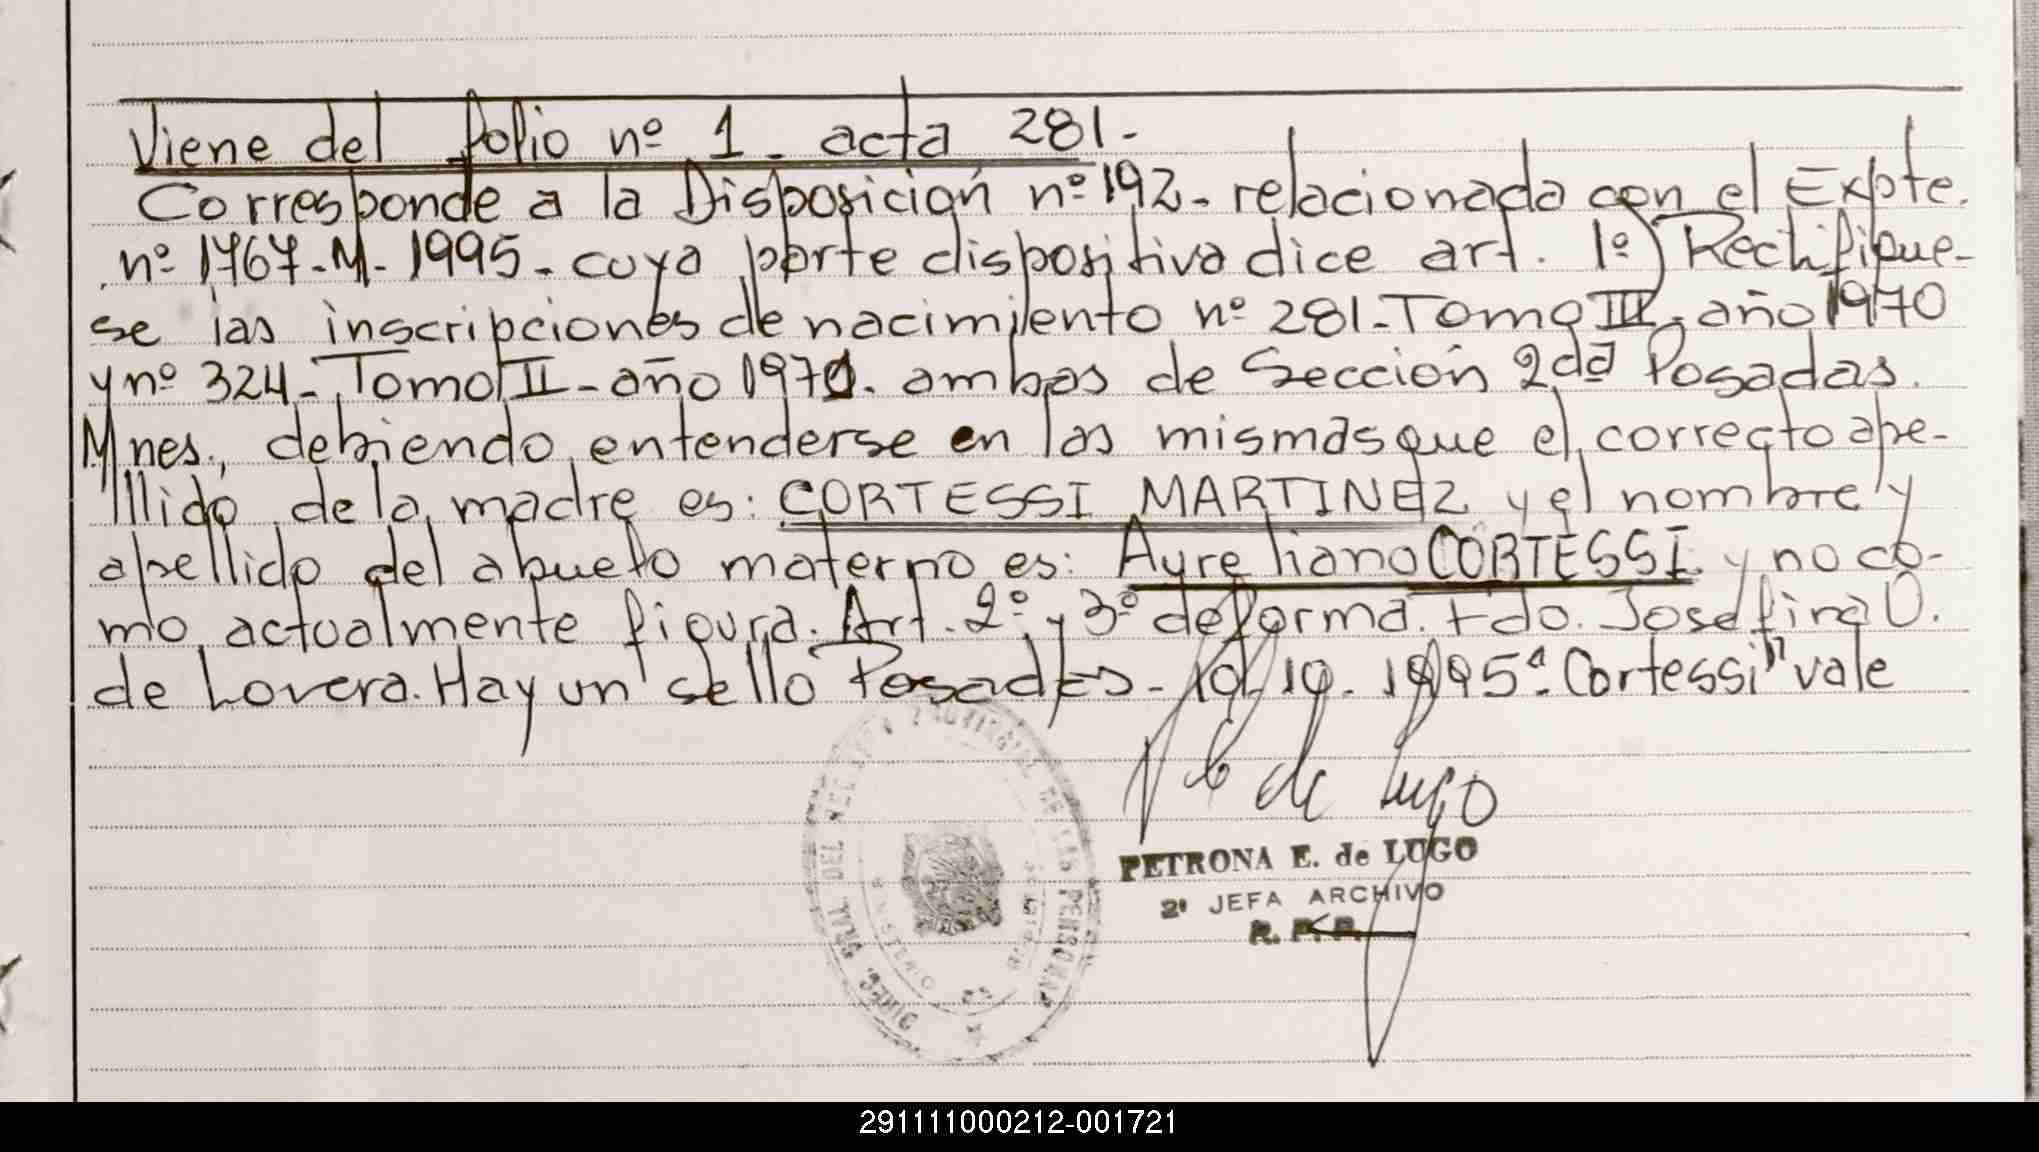 Viene del folio nº 1 - acta 281.-
Corresponde a la Disposición nº 192 - relacionada con el Expte.
nº 1767-M-1995 - cuya parte dispositiva dice art. 1º) Rectifique-
se las inscripciones de nacimiento nº 281 - Tomo III - año 1970
y nº 324 - Tomo II - año 1971. ambas de Sección 2da Posadas.
Mnes., debiendo entenderse en las mismas que el correcto ape-
llido de la madre es: CORTESSI MARTINEZ y el nombre y
apellido del abuelo materno es: Aureliano CORTESSI y no co-
mo actualmente figura. Art. 2º y 3º de forma. Fdo. Josefina O.
de Lovera. Hay un sello Posadas - 19. 1995 "Cortessi" vale
de Lugo
PETRONA E. de LUGO
2º JEFA ARCHIVO
R. P. P.
291111000212-001721